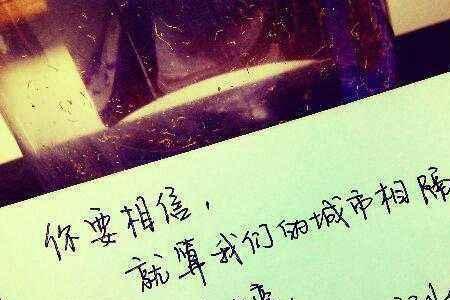 你要相信，
就算我们的城市相隔